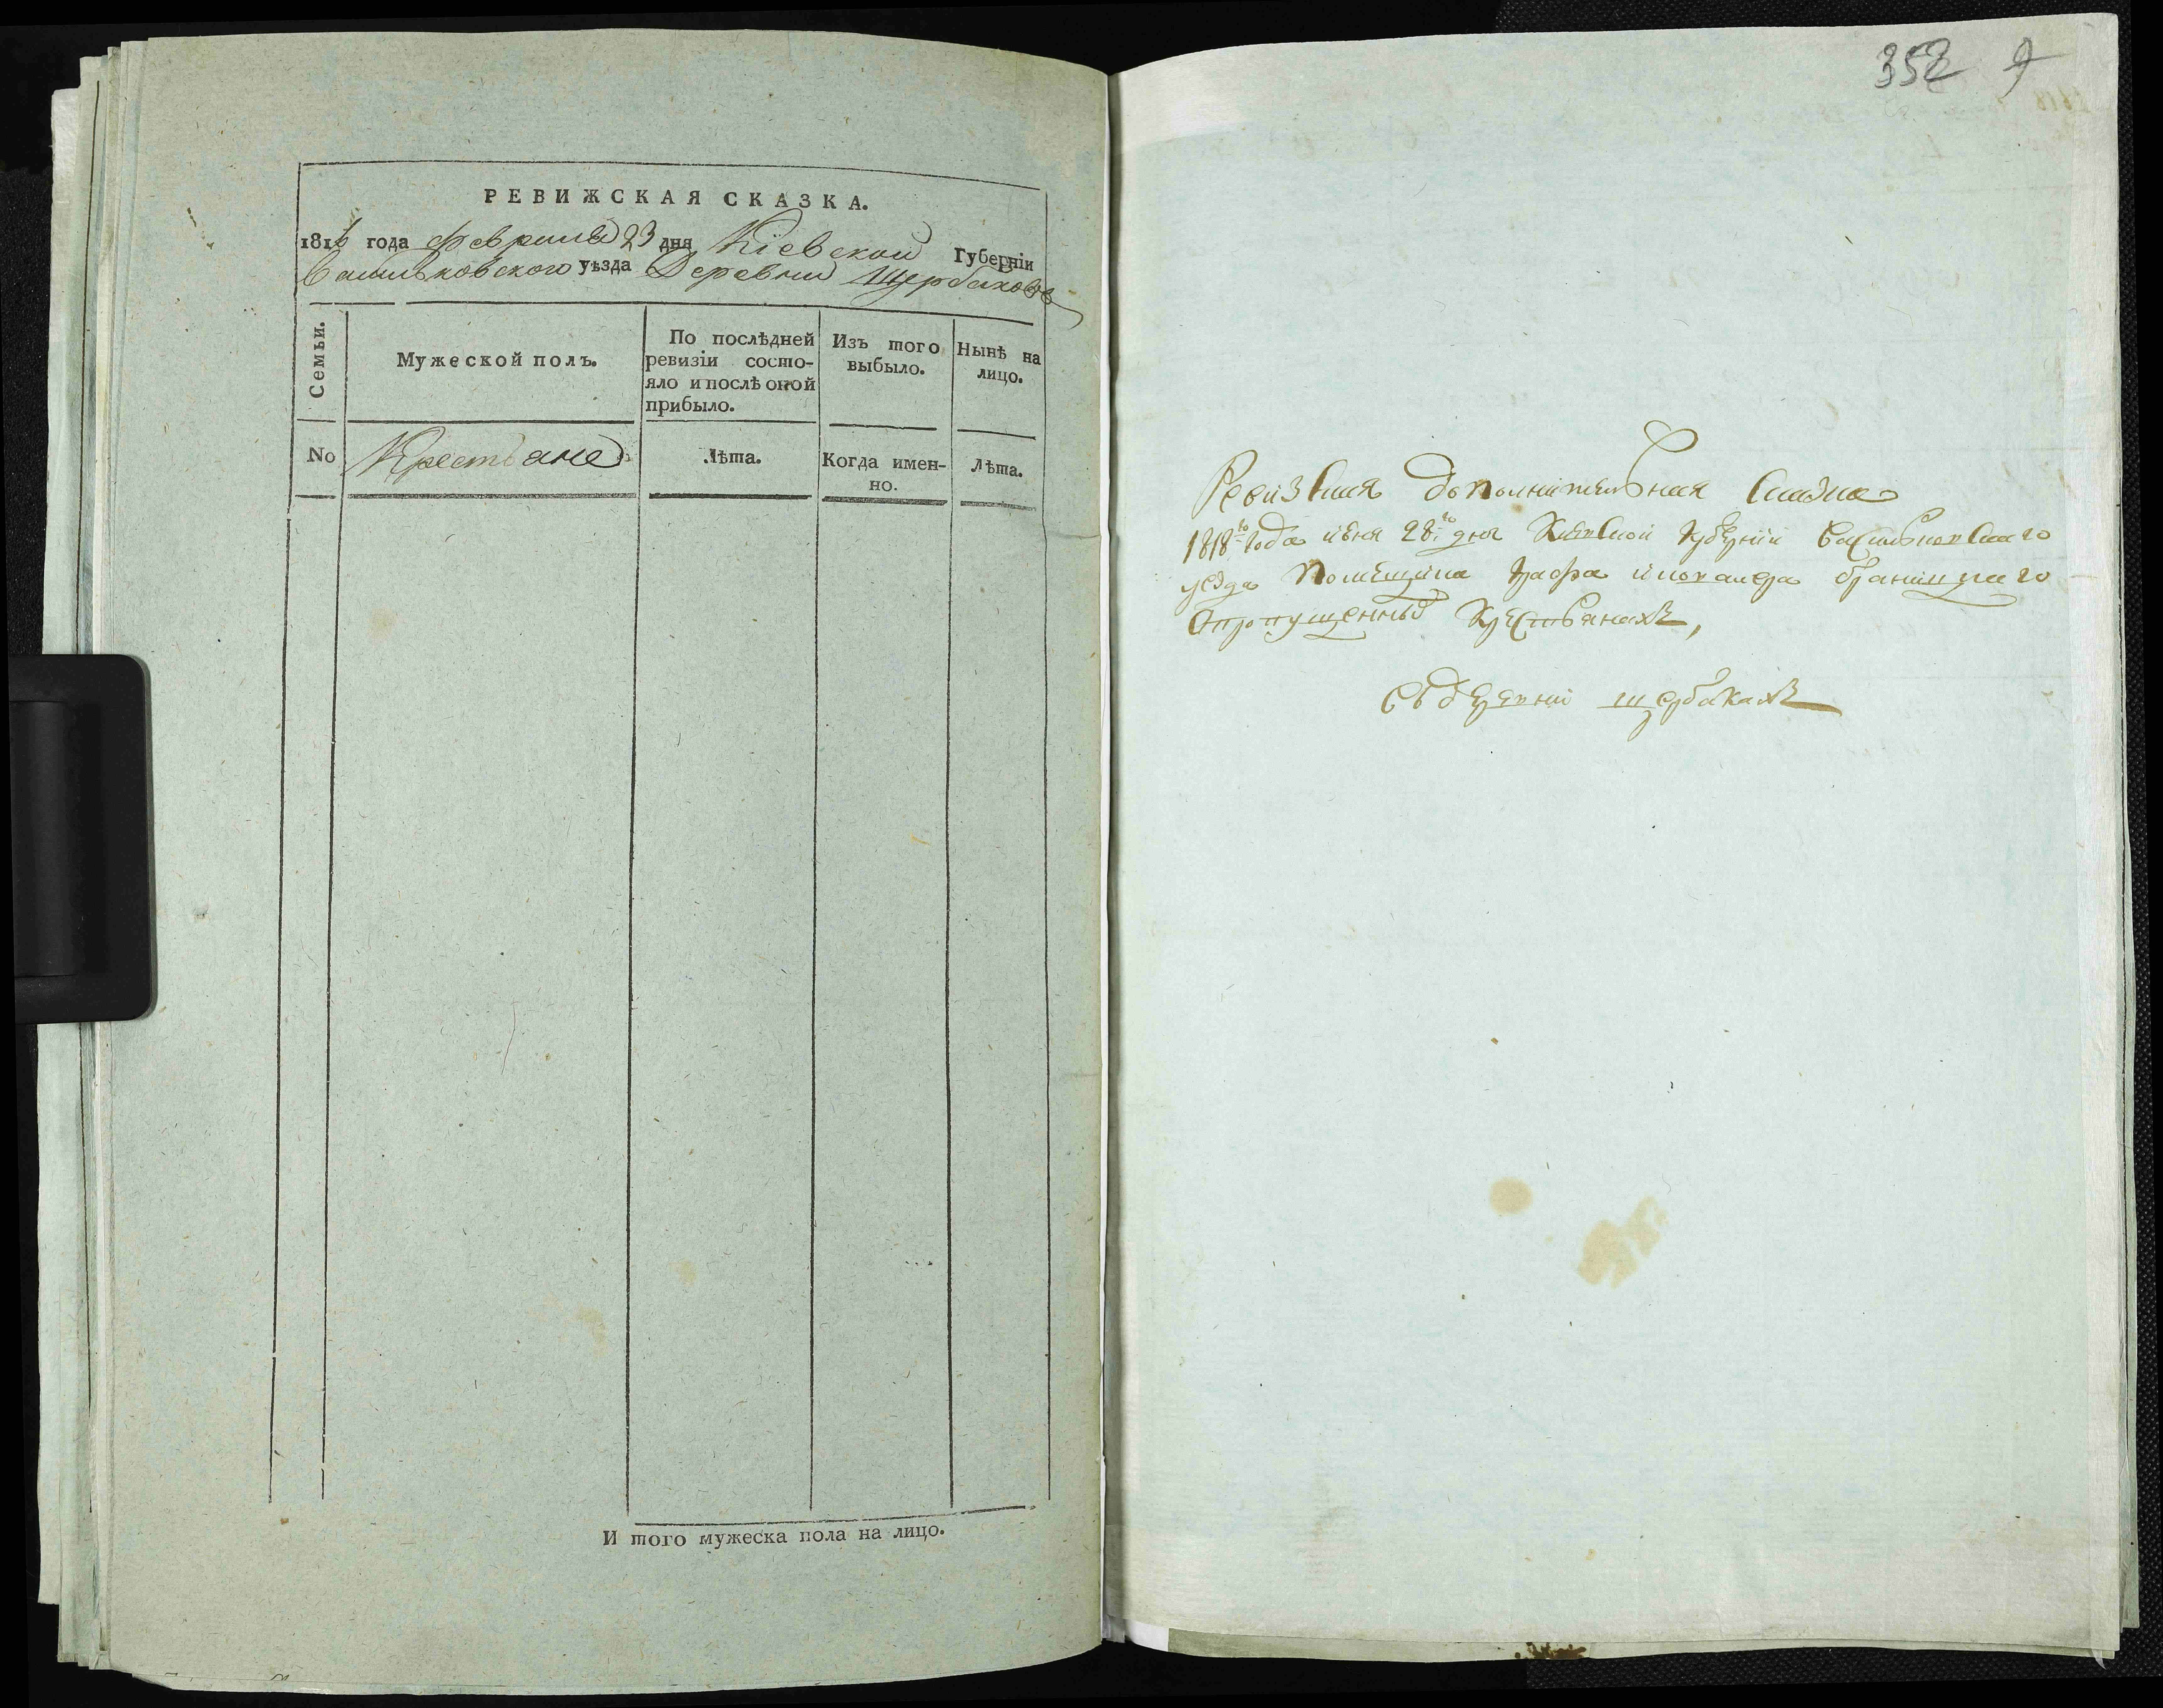 РЕВИЖСКАЯ СКАЗКА.
1816 года февраля 23 дня Кіевской Губерніи
Васильковского уѣзда Деревни Щербаковъ
Семьи.
Мужеской полъ.
По послѣдней
ревизіи состо-
яло и послѣ оной
прибыло.
Изъ того
выбыло.
Нынѣ на
лицо.
No
Крестьяне
Лѣта.
Когда имен-
но.
Лѣта.
И того мужеска пола на лицо.
352 9
Ревизкая дополнительная Сказка
1818го года июня 28го дня Киевской губернии Васильковскаго
уезда Помещика Графа и ковалера браницкаго
О пропущенных Крестьянахъ,
Въ деревни щербакахъ